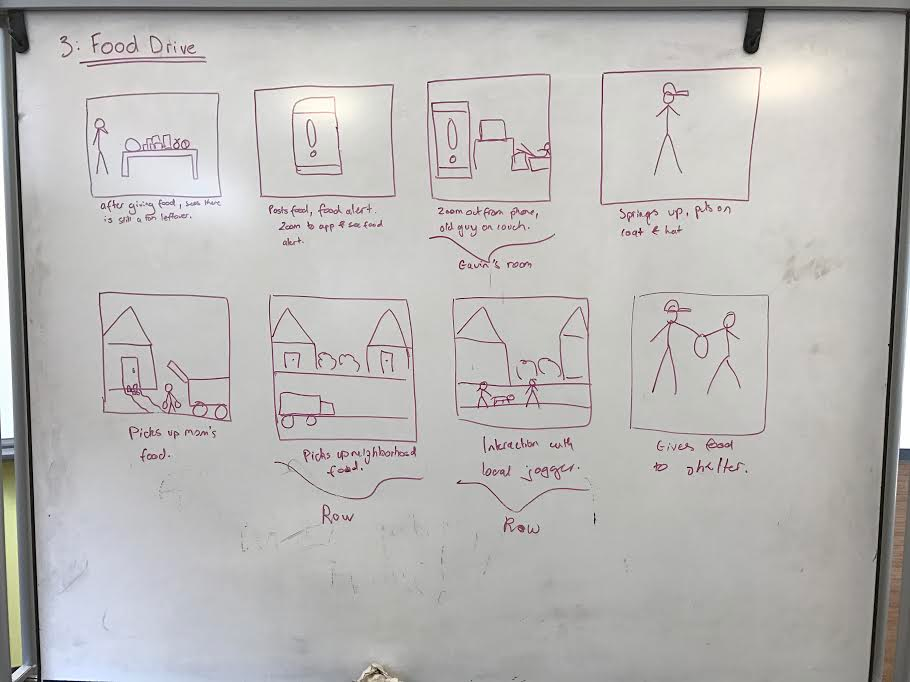 3: Food Drive
after giving food, sees there
is still a ton leftover.
Posts food, food alert.
Zoom to app & see food
alert.
Zoom out from phone,
old guy on couch.
Gavin's room
Springs up, puts on
coat & hat
Picks up mom's
food.
Picks up neighborhood
food.
Row
Interaction with
local jogger.
Row
Gives food
to shelter.